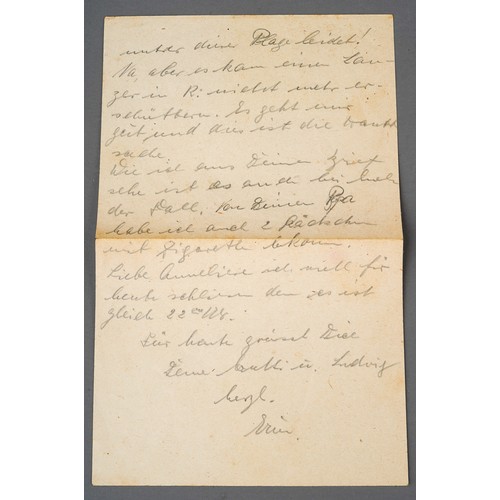 unter dieser Plage leidet!
Na, aber es kam einen Lan-
zer in R. nicht mehr er-
schüttern. Es geht mir
gut und dies ist die Haupt
sache.
Wie ich aus Deiner Brief
sehe ist es auch bei
der Fall. Von Deinem Pa
habe ich auch 2 Päckchen
mit Zigaretten bekom.
Liebe Anneliese ich will für
heute schliesen den es ist
gleich 22 Uhr.
Für heute grüsst Dich
Deine Mutti u. Ludwig
herzl.